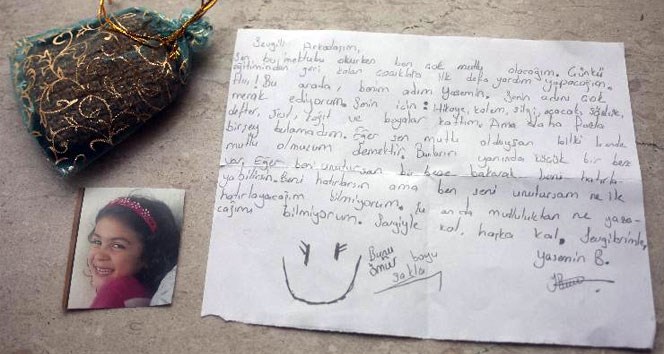 Sevgili Arkadaşım,
Sen bu mektubu okurken ben çok mutlu olacağım. Çünkü
eğitiminden geri kalan çocuklara ilk defa yardım yapacağım.
Bu arada, benim adım Yasemin. Senin adını çok
merak ediyorum. Senin için: Hikaye, kalem, silgi, açacak, sözlük,
defter, ve boyalar kattım. Ama daha fazla
birşey bulamadım. Eğer sen mutlu olduysan bilki bende
mutlu olmuşum demektir. Bunların yanında küçük bir bere
var. Eğer beni unutursan bu bere bakarak beni hatırla-
yabilirsin. Beni hatırlarsın ama ben seni unutursam ne ile
hatırlayacağım bilmiyorum. Şu anda mutluluktan ne yapa-
cağımı bilmiyorum. Sevgiyle kal, hoşça kal. Sevgilerimle,
Yasemin B.
Bunu
ömür boyu
sakla